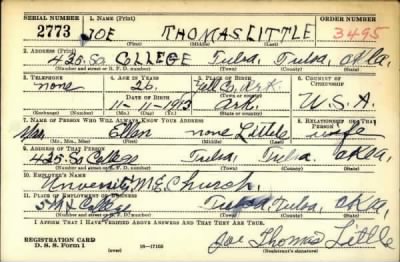 SERIAL NUMBER 1. NAME (Print) ORDER NUMBER
2773 JOE THOMAS LITTLE 3495
(First) (Middle) (Last)
2. ADDRESS (Print)
425 So COLLEGE Tulsa, Tulsa, Okla,
(Number and street or R. F. D. number) (Town) (County) (State)
3. TELEPHONE 4. AGE IN YEARS 5. PLACE OF BIRTH 6. COUNTRY OF CITIZENSHIP
none 26. Yell Co, Ark.
DATE OF BIRTH
11-11-1913 Ark. U.S.A.
(Exchange) (Number) (Mo.) (Day) (Yr.) (State or country)
7. NAME OF PERSON WHO WILL ALWAYS KNOW YOUR ADDRESS 8. RELATIONSHIP OF THAT PERSON
Mrs. Ellen none Little wife
(Mr., Mrs., Miss) (First) (Middle) (Last)
9. ADDRESS OF THAT PERSON
425 So College Tulsa, Tulsa, Okla,
(Number and street or R. F. D. number) (Town) (County) (State)
10. EMPLOYER'S NAME
University M.E. Church.
11. PLACE OF EMPLOYMENT OR BUSINESS
College Tulsa, Tulsa, Okla,
(Number and street or R. F. D. number) (Town) (County) (State)
I AFFIRM THAT I HAVE VERIFIED ABOVE ANSWERS AND THAT THEY ARE TRUE.
REGISTRATION CARD
D. S. S. Form 1 16-17105 Joe Thomas Little
(Registrant's signature)